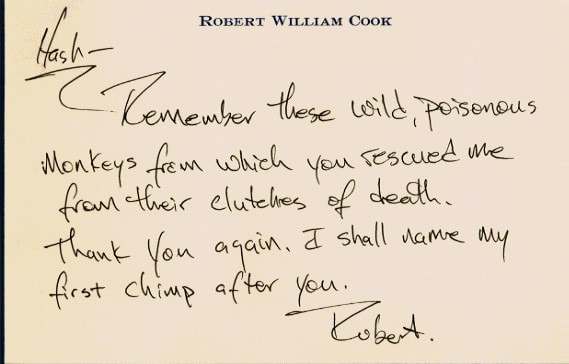 ROBERT WILLIAM COOK
Hash—
Remember these wild, poisonous
monkeys from which you rescued me
from their clutches of death.
Thank you again. I shall name my
first chimp after you.
Robert.